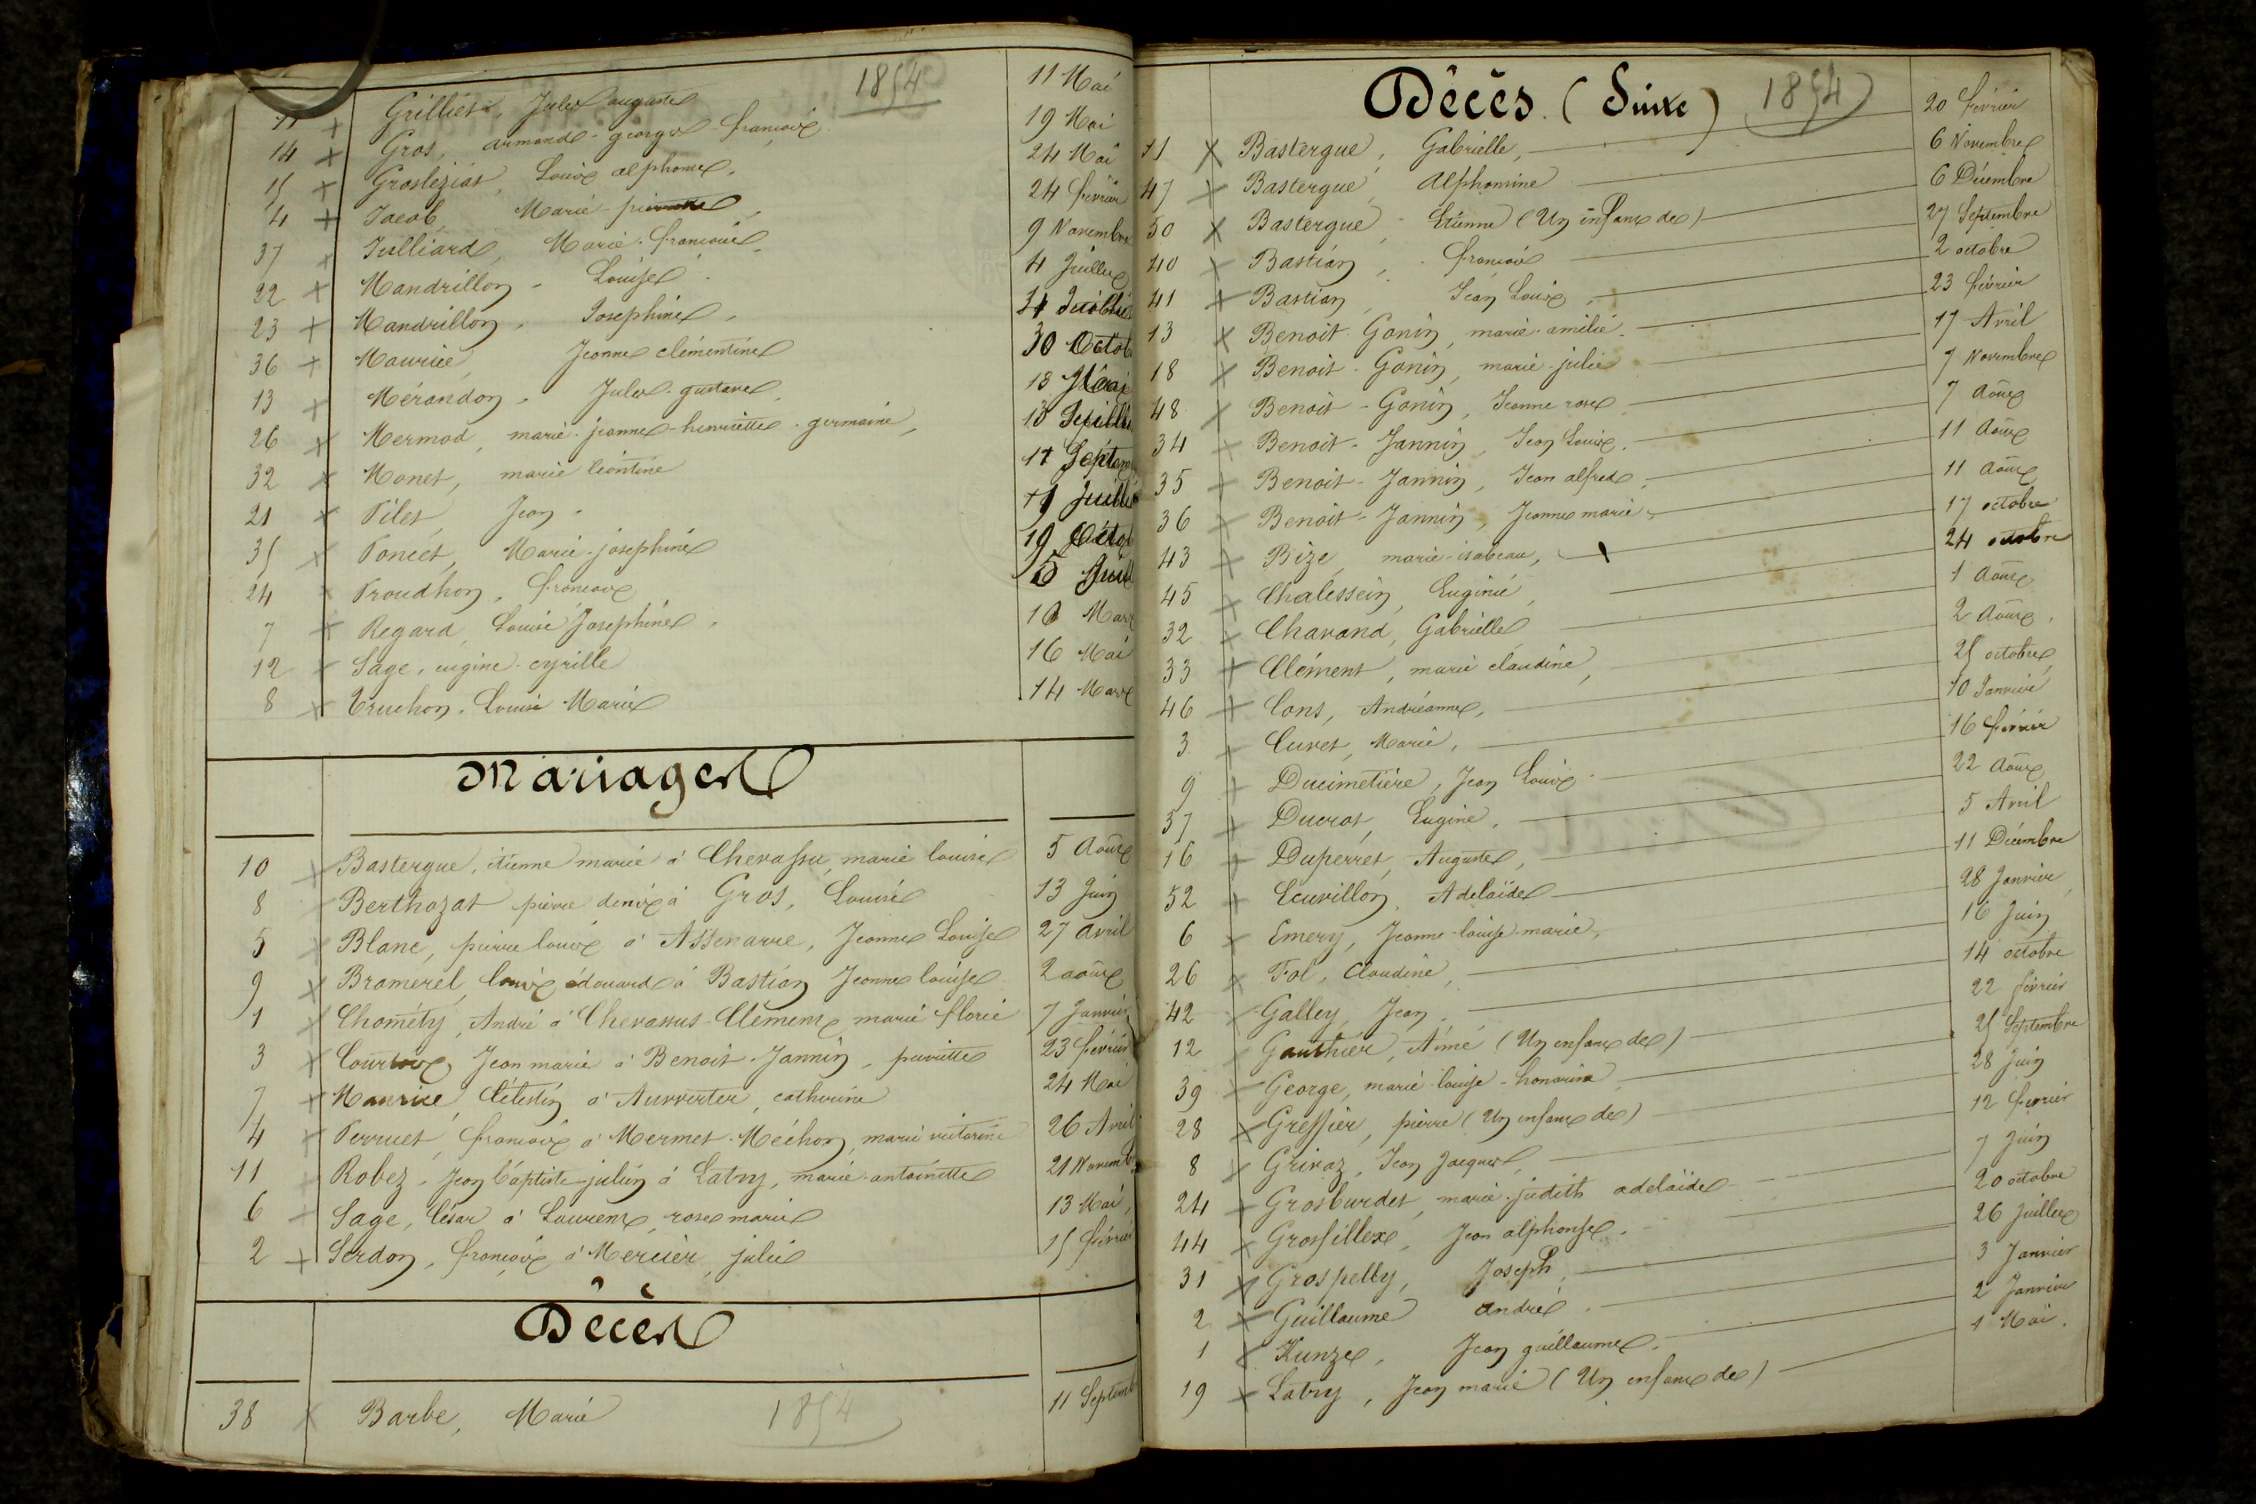 1854
11 + Grilliet, Jules auguste 11 Mai
14 + Gros, armand-georges-françois 19 Mai
15 + Grosléziat, Louis alphonse. 24 Mai
4 + Jacob, Marie 24 février
37 + Julliard, Marie-françoise. 9 Novembre
22 + Mandrillon, Louise 4 Juillet
23 + Mandrillon, Josephine,
36 + Maurice, Jeanne clémentine 30 Octob
13 + Mérandon, Jules-gustave. 13 Mai
26 + Mermod, marie-jeanne-henriette-germaine,
32 + Monet, marie léontine 17 Septem
21 + Pilet, Jean. Juillet
35 + Poncet, Marie-josephine 19 Octob
24 + Proudhon, françois Juill
7 + Regard, Louise Josephine. Mars
12 + Sage, eugène-cyrille 16 Mai
8 + Truchon, Louise Marie 14 Mars
Mariages
10 + Bastergue, étienne marié à Chevassu, marie louise 5 Août
8 Berthozat pierre denis à Gros, Louise 13 Juin
5 + Blanc, pierre louis à Assenarre, Jeanne Louise 27 avril
9 + Bramerel, louis édouard à Bastian Jeanne louise 2 août
1 + Chométy, André à Chevassus-Clément marie florie 7 Janvier
3 + Courtois, Jean marie à Benoit-Jannin, pierrette 23 février
7 + Maurice, Célestin à Aurverter, catherine 24 Mai
4 + Perruet, françois à Mermet-Méchon, marie victorine 26 Avril
11 Robez, Jean baptiste-julien à Latry, marie-antoinette 21 Novemb
6 Sage, César à Laurent, rose marie 13 Mai,
2 + Serdon, françois à Mercier, julie 15 février
Décès
38 + Barbe, Marie 1854 11 Septemb
Décès. (Suite) 1854
11 + Bastergue, Gabrielle, 20 février
47 + Bastergue, Alphonsine 6 Novembre
50 + Bastergue, Etienne (Un enfant de) 6 Décembre
40 + Bastian, françois 27 Septembre
41 + Bastian, Jean Louis, 2 octobre
13 + Benoit-Gonin, marie-amélie. 23 février
18 + Benoit-Gonin, marie-julie 17 Avril
48 + Benoit-Gonin, Jeanne rose 7 Novembre
34 + Benoit-Jannin, Jean Louis. 7 Août
35 + Benoit-Jannin, Jean alfred, 11 Août
36 + Benoit-Jannin, Jeanne marie, 11 Août
43 + Bize, marie-isabeau, 17 octobre
45 + Chalessein, Eugénie, 24 octobre
32 + Chavand, Gabrielle 1 Août
33 + Clément, marie claudine, 2 Août.
46 + Cons, Andréanne, 25 octobre,
3 + Curet, Marie, 10 Janvier
9 + Ducimetière, Jean Louis. 16 février
37 + Ducrot, Eugène. 22 Août
16 + Duperret, Auguste, 5 Avril
52 + Ecuvillon, Adelaïde 11 Décembre
6 + Emery, Jeanne-louise-marie, 28 Janvier
26 + Fol, Claudine, 16 Juin
42 Galley, Jean. 14 octobre
12 Gauthier, Aimé (Un enfant de) 22 février
39 + George, marie-louise-honorine 25 Septembre
28 + Greffier, pierre (Un enfant de) 28 Juin
8 + Grivaz, Jean Jacques, 12 février
24 + Grosburdet, marie-judith adelaïde 7 Juin
44 + Grosfillex, Jean alphonse. 20 octobre
31 + Grospelly, Joseph, 26 Juillet
2 + Guillaume André. 3 Janvier
1 + Kunze, Jean guillaume. 2 Janvier
19 + Latry, Jean marie (Un enfant de) 1 Mai.